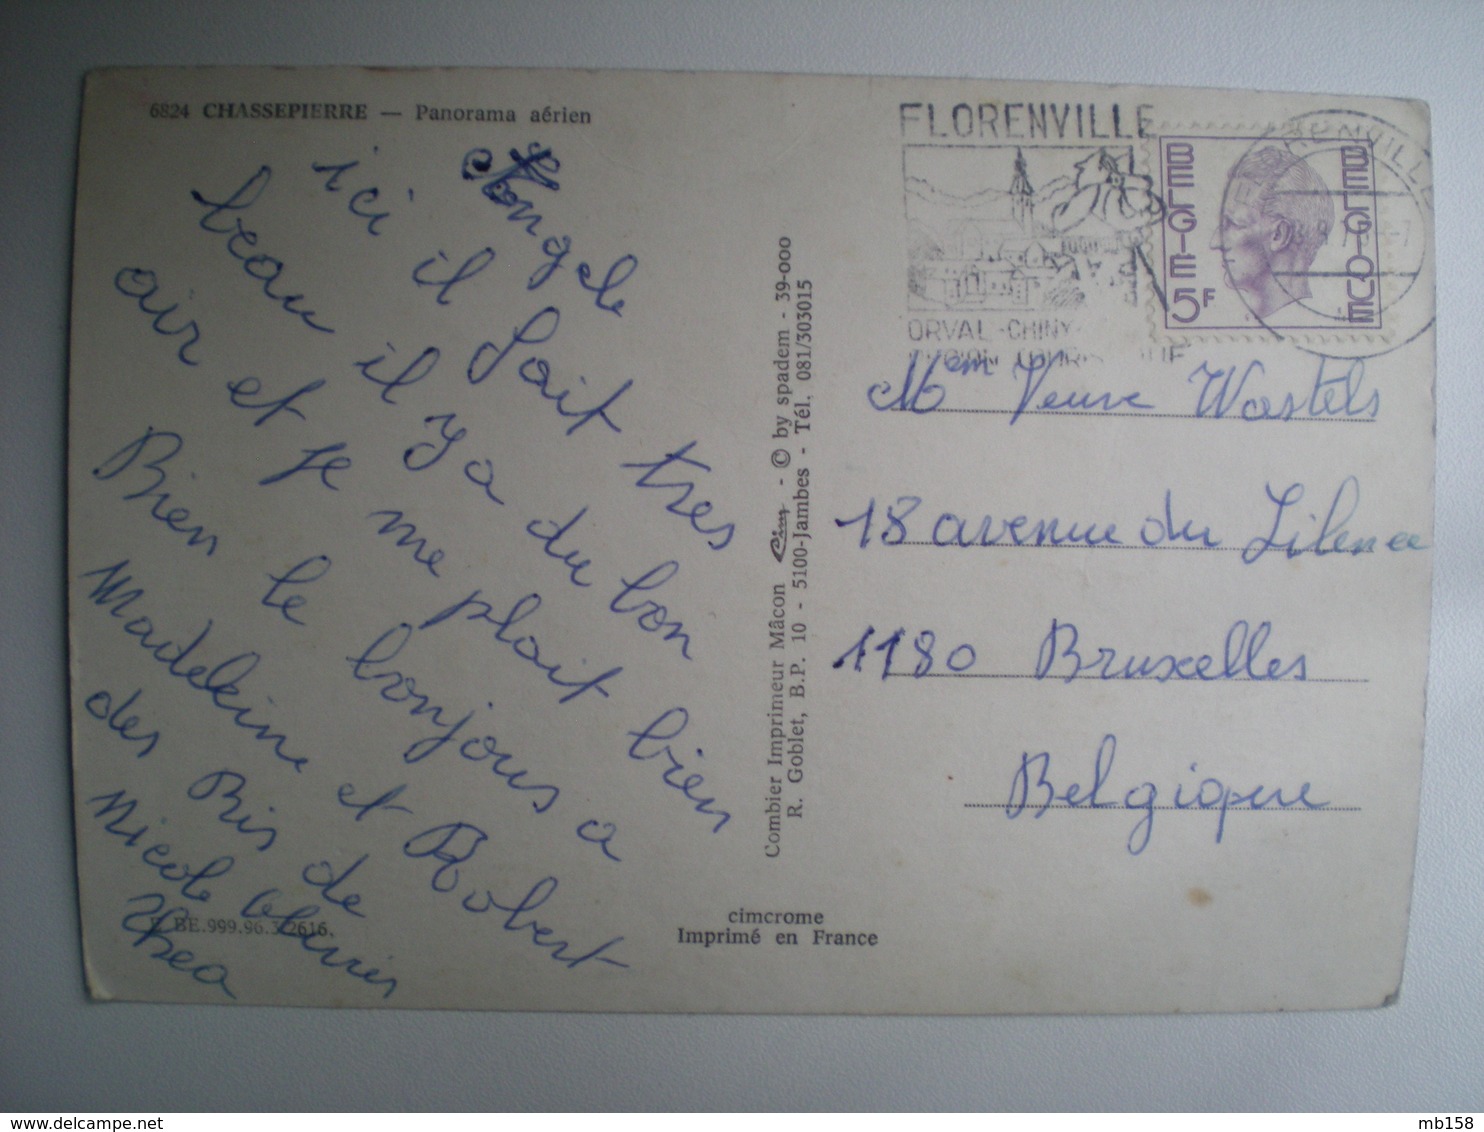 6824 CHASSEPIERRE — Panorama aérien
Angele
ici il fait tres
beau il ya du bon
air et je me plait bien
Bien le bonjous a
Madeleine et Robert
des Bis de
Nicole
Thea
E. BE.999.96.3.2616.
Combier Imprimeur Mâcon Cim - © by spadem - 39-000
R. Goblet, B.P. 10 - 5100-Jambes - Tél. 081/303015
cimcrome
Imprimé en France
FLORENVILLE
ORVAL - CHINY
BELGIE 5F
BELGIQUE
Mem Veuve Wastels
18 avenue du Silence
1180 Bruxelles
Belgique
mb158